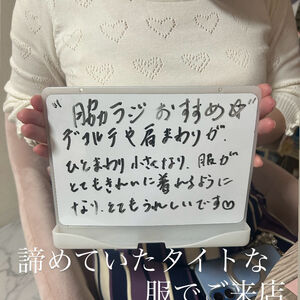 "脇ラジおすすめ☆"
デコルテや肩まわりが
ひとまわり小さくなり、服が
とてもきれいに着れるように
なり、とてもうれしいです♡
諦めていたタイトな
服でご来店